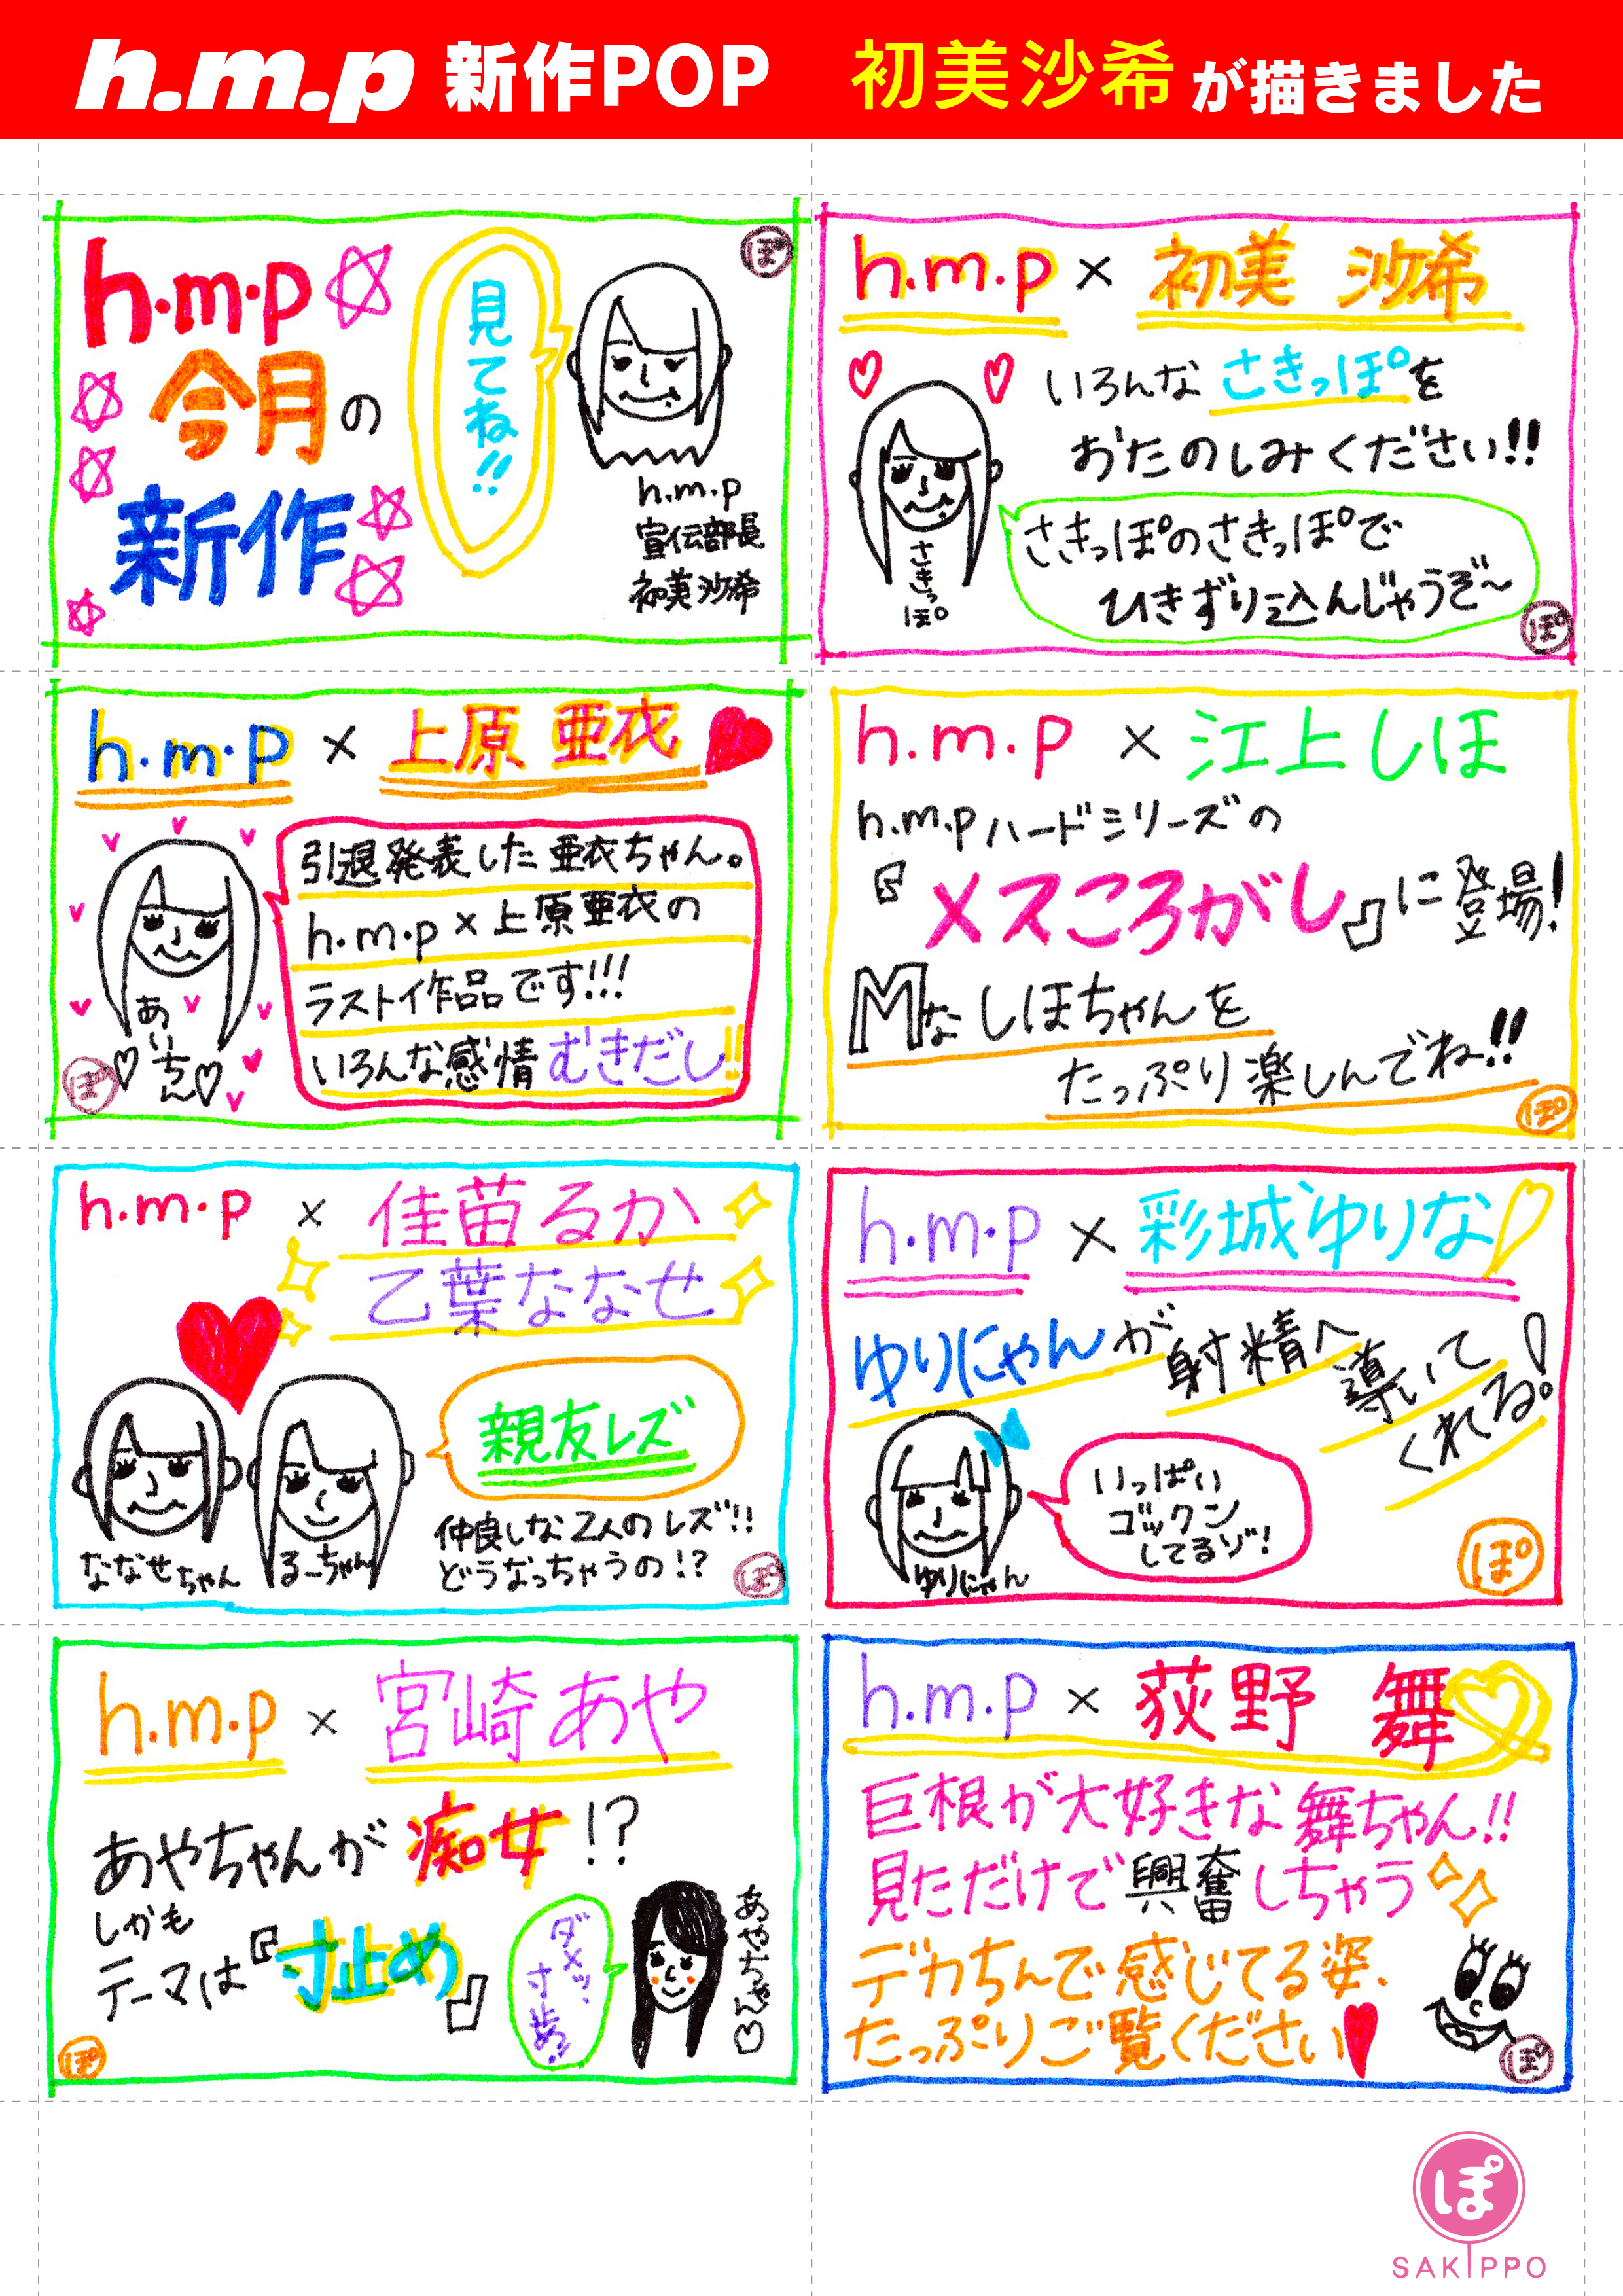 h.m.p 新作POP 初美沙希が描きました
h.m.p
今月の
新作
見てね!!
h.m.p
宣伝部長
初美沙希
ぽ
h.m.p × 初美 沙希
いろんなさきっぽを
おたのしみください!!
さきっぽのさきっぽで
ひきずり込んじゃうぞ〜
さきっぽ
ぽ
h.m.p × 上原 亜衣
引退発表した亜衣ちゃん。
h.m.p×上原亜衣の
ラスト作品です!!!
いろんな感情むきだし!!
あいちん
ぽ
h.m.p × 江上しほ
h.m.pハードシリーズの
『メスころがし』に登場!
Mなしほちゃんを
たっぷり楽しんでね!!
ぽ
h.m.p × 佳苗るか
乙葉ななせ
親友レズ
仲良しな2人のレズ!!
どうなっちゃうの!?
ななせちゃん
るーちゃん
ぽ
h.m.p × 彩城ゆりな
ゆりにゃんが射精へ導いて
くれる!
いっぱい
ゴックン
してるゾ!
ゆりにゃん
ぽ
h.m.p × 宮崎あや
あやちゃんが痴女!?
しかも
テーマは『寸止め』
ダメッ、
寸止め!
あやちゃん
ぽ
h.m.p × 荻野 舞
巨根が大好きな舞ちゃん!!
見ただけで興奮しちゃう
デカちんで感じてる姿、
たっぷりご覧ください
ぽ
ぽ
SAKIPPO